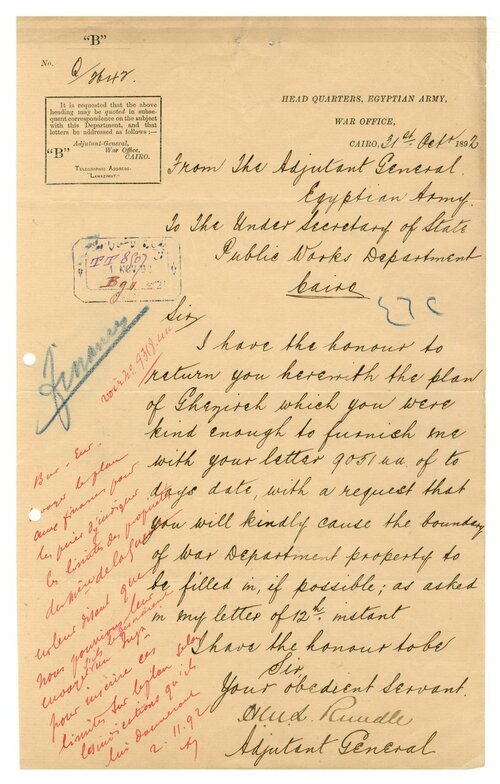 "B"
No. Q/2642.
It is requested that the above
heading may be quoted in subse-
quent correspondence on the subject
with this Department, and that
letters be addressed as follows :—
"B" Adjutant-General,
War Office,
CAIRO.
TELEGRAPHIC ADDRESS-
HEAD QUARTERS, EGYPTIAN ARMY,
WAR OFFICE,
CAIRO, 31st Octr 1892
From The Adjutant General
Egyptian Army.
To The Under Secretary of State
Public Works Department
Cairo
Sir
I have the honour to
return you herewith the plan
of Ghezireh which you were
kind enough to furnish me
with your letter 9051 of to
days date, with a request that
you will kindly cause the boundary
of War Department property to
be filled in, if possible; as asked
in my letter of 12th instant
I have the honour to be
Sir,
Your obedient Servant.
Rundle
Adjutant General
Finances
le plan
aux finances pour
les prier d'indiquer
les limites des propriétés
du Mère de la Guerre
disant que
nous
pour inscrire ces
limites sur le plan
les indications qu'ils
lui donneront
2.11.92